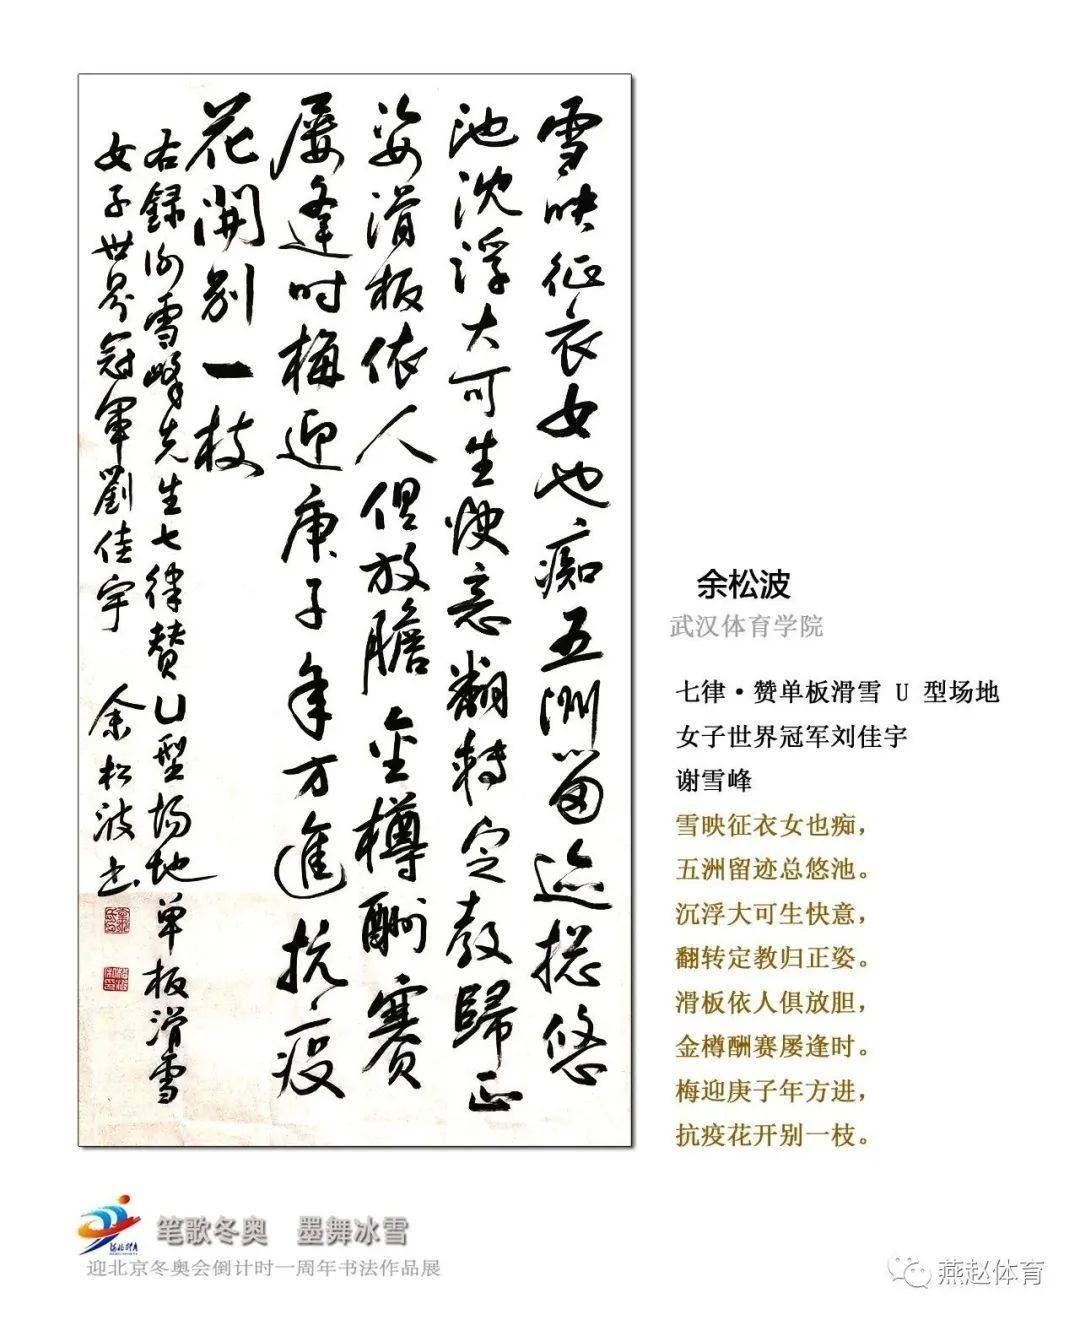 雪映征衣女也痴五洲留迹总悠
池沈浮大可生快意翻转定教歸正
姿滑板依人俱放膽金樽酬赛
屡逢时梅迎庚子年方進抗疫
花開别一枝
右録谢雪峰先生七律赞U型场地单板滑雪
女子世界冠軍劉佳宇 余松波书
余松波
武汉体育学院
七律·赞单板滑雪 U 型场地
女子世界冠军刘佳宇
谢雪峰
雪映征衣女也痴，
五洲留迹总悠池。
沉浮大可生快意，
翻转定教归正姿。
滑板依人俱放胆，
金樽酬赛屡逢时。
梅迎庚子年方进，
抗疫花开别一枝。
笔歌冬奥 墨舞冰雪
迎北京冬奥会倒计时一周年书法作品展
燕赵体育